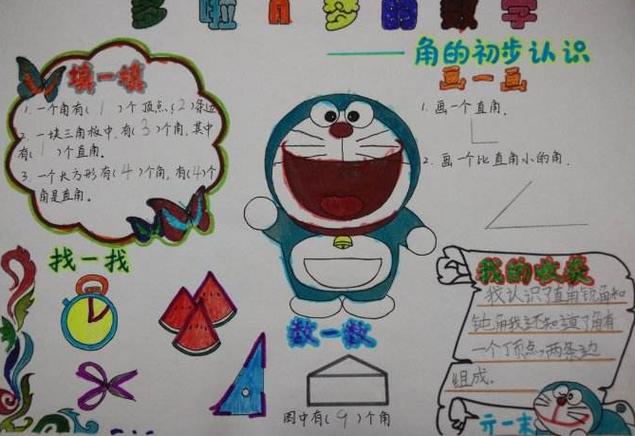 多啦A梦的数学
——角的初步认识
填一填
1. 一个角有( 1 )个顶点,(2)条边
2. 一块三角板中,有(3)个角,其中
有( 1 )个直角.
3. 一个长方形有(4)个角,有(4)个
角是直角.
画一画
1. 画一个直角.
2. 画一个比直角小的角.
找一找
数一数
图中有( 9 )个角
我的收获
我认识了直角锐角和
钝角我还知道了角有
一个顶点,两条边
组成。